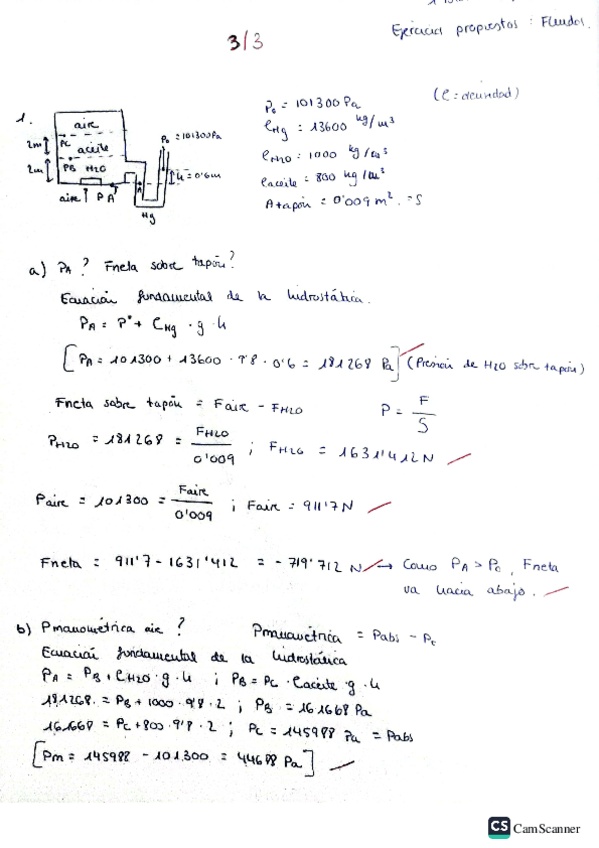 Ejercicios propuestos : Fluidos.
3/3
1.
aire
2m PC aceite
2m PB H2O
aire PA
A
Hg
P₀ = 101300Pa
h = 0'6m
P₀ = 101300 Pa
(ρ : densidad)
ρHg : 13600 kg/m³
ρH2O : 1000 kg/m³
ρaceite : 800 kg/m³
A tapón : 0'009 m². = S
a) PA? Fneta sobre tapón?
Ecuación fundamental de la hidrostática.
PA = P° + ρHg · g · h
[PA = 101300 + 13600 · 9'8 · 0'6 = 181268 Pa] (Presión de H2O sobre tapón)
Fneta sobre tapón = Faire - FH2O P = F/S
PH2O = 181268 = FH2O/0'009 ; FH2O = 1631'412 N
Paire = 101300 = Faire/0'009 ; Faire = 911'7 N
Fneta = 911'7 - 1631'412 = -719'712 N → Como PA > P₀, Fneta
va hacia abajo.
b) Pmanométrica aire ? Pmanométrica = Pabs - P₀
Ecuación fundamental de la hidrostática
PA = PB + ρH2O · g · h ; PB = PC · ρaceite · g · h
181268 = PB + 1000 · 9'8 · 2 ; PB = 161668 Pa
161668 = PC + 800 · 9'8 · 2 ; PC = 145988 Pa = Pabs
[Pm = 145988 - 101300 = 44688 Pa]
CS CamScanner